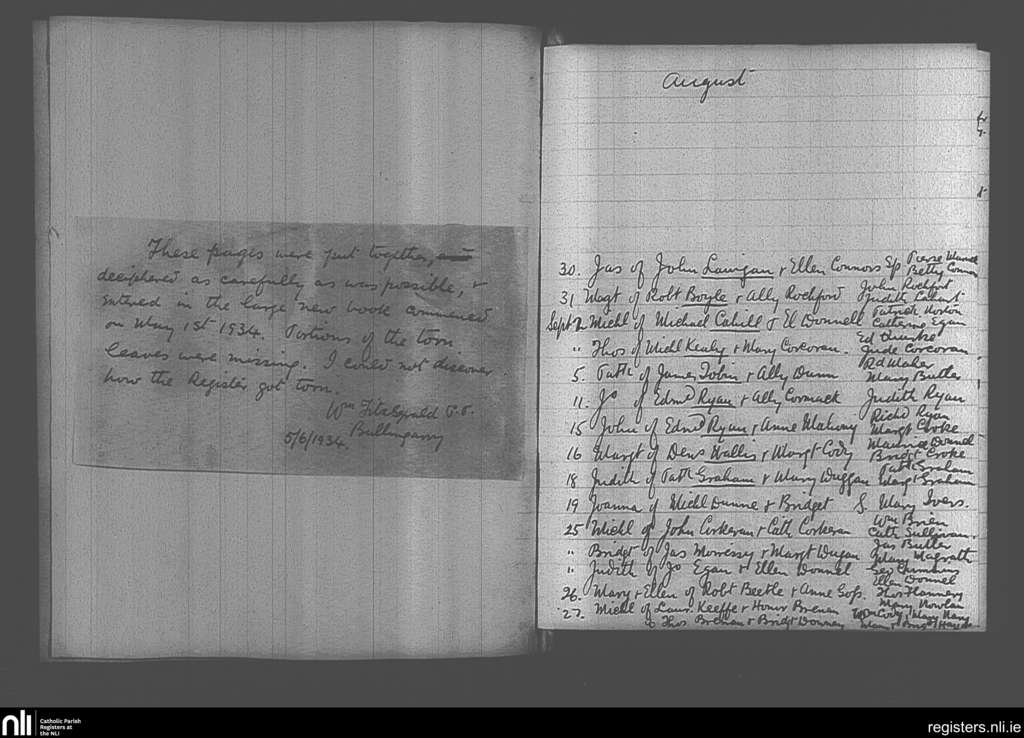 These pages were put together,
deciphered as carefully as was possible, &
entered in the large new book commenced
on May 1st 1934. Portions of the torn
leaves were missing. I could not discover
how the Register got torn.
Wm FitzGerald P.P.
Ballingarry
5/6/1934.
August
30. Jas of John Lanigan & Ellen Connors Sp Pierse
Betty Connors
31 Magt of Robt Boyle & Ally Rochford John Rochfort
Judith
Sept 2 Michl of Michael Cahill & El Donnell Patrick Horton
Catherine Egan
" Thos of Michl Kealy & Mary Corcoran. Ed
Jude Corcoran
5. Patk of James Tobin & Ally Dunn Rd Maher
Mary Butler
11. Js of Edmd Ryan & Ally Cormack Judith Ryan
15 John of Edmd Ryan & Anne Mahony Richd Ryan
Margt Croke
16 Margt of Denis Wallis & Margt Cody Maurice Donnel
Bridgt Croke
18 Judith of Patk Graham & Mary Duggan Patk Graham
Margt Graham
19 Joanna of Michl Dunne & Bridget S. Mary Ivers.
25 Michl of John Corkeran & Cath Corkeran Wm Brien
Cath Sullivan.
" Bridgt of Jas Morrissy & Margt Dugan Jas Butler
Mary Magrath
" Judith of Js Egan & Ellen Donnel Geo
Ellen Donnel
26. Mary & Ellen of Robt Beetle & Anne Goss. Thos Flannery
Mary Nowlan
27. Michl of Laur. Keeffe & Honor Brenan Wm Cody, Mary
Thos Brenan & Bridgt Downey
nli
Catholic Parish
Registers at
the NLI
registers.nli.ie